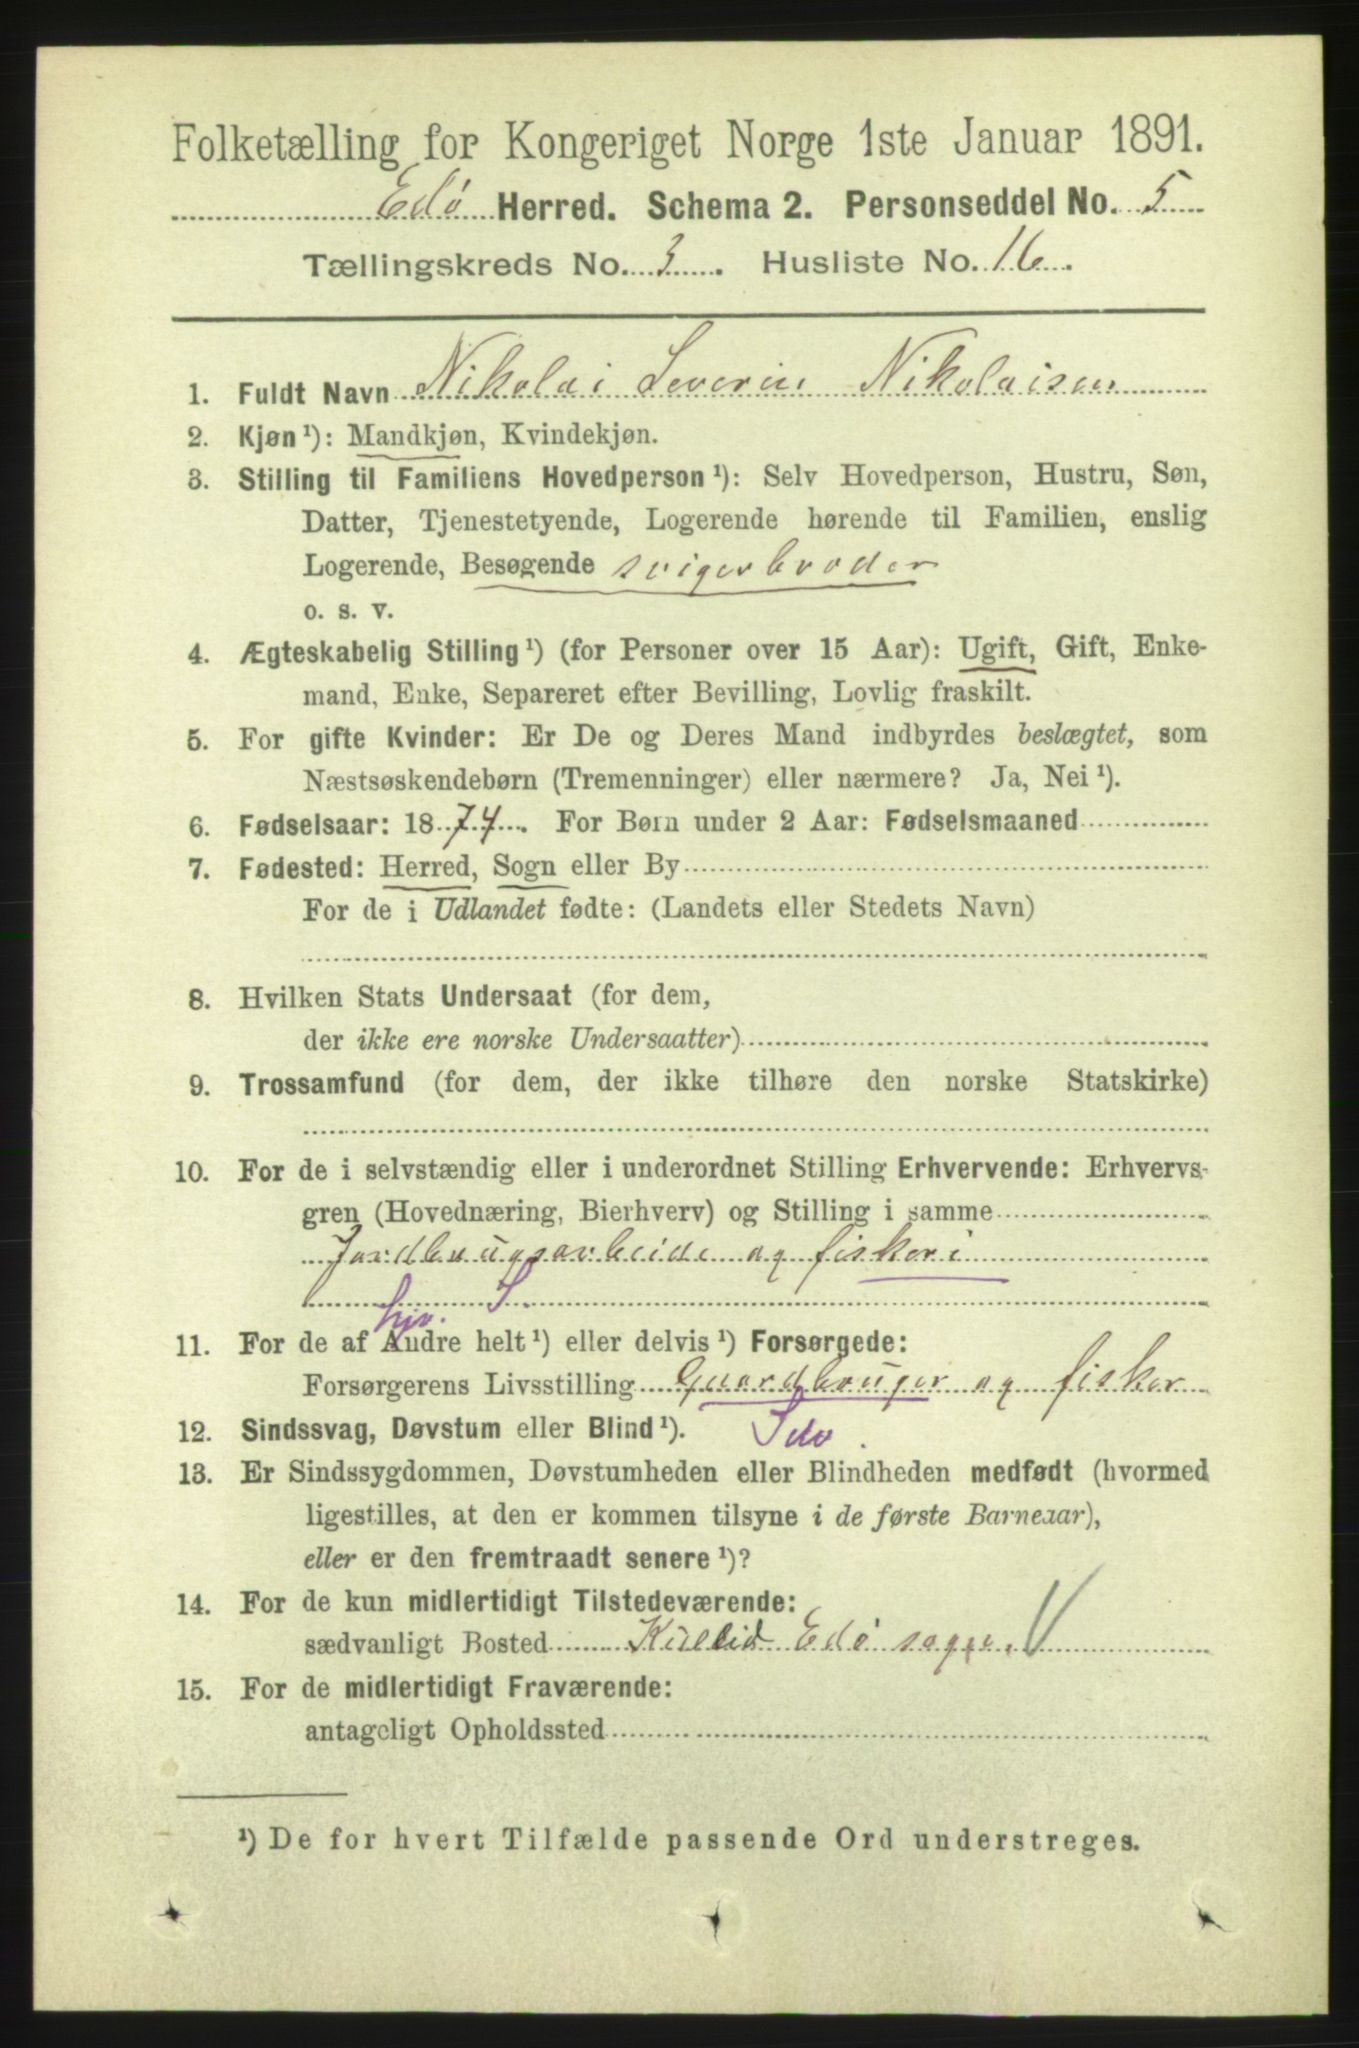 Folketælling for Kongeriget Norge 1ste Januar 1891.
Edø Herred. Schema 2. Personseddel No. 5
Tællingskreds No. 3. Husliste No. 16.
1. Fuldt Navn Nikolai Severin Nikolaisen
2. Kjøn ¹): Mandkjøn, Kvindekjøn.
3. Stilling til Familiens Hovedperson ¹): Selv Hovedperson, Hustru, Søn,
Datter, Tjenestetyende, Logerende hørende til Familien, enslig
Logerende, Besøgende svigerbroder
o. s. v.
4. Ægteskabelig Stilling ¹) (for Personer over 15 Aar): Ugift, Gift, Enke-
mand, Enke, Separeret efter Bevilling, Lovlig fraskilt.
5. For gifte Kvinder: Er De og Deres Mand indbyrdes beslægtet, som
Næstsøskendebørn (Tremenninger) eller nærmere? Ja, Nei ¹).
6. Fødselsaar: 1874. For Børn under 2 Aar: Fødselsmaaned
7. Fødested: Herred, Sogn eller By
For de i Udlandet fødte: (Landets eller Stedets Navn)
8. Hvilken Stats Undersaat (for dem,
der ikke ere norske Undersaatter)
9. Trossamfund (for dem, der ikke tilhøre den norske Statskirke)
10. For de i selvstændig eller i underordnet Stilling Erhvervende: Erhvervs-
gren (Hovednæring, Bierhverv) og Stilling i samme
Jordbrugsarbeide og fiskeri
hjv. S.
11. For de af Andre helt ¹) eller delvis ¹) Forsørgede:
Forsørgerens Livsstilling Gaardbruger og fisker
12. Sindssvag, Døvstum eller Blind ¹). Sdv.
13. Er Sindssygdommen, Døvstumheden eller Blindheden medfødt (hvormed
ligestilles, at den er kommen tilsyne i de første Barneaar),
eller er den fremtraadt senere ¹)?
14. For de kun midlertidigt Tilstedeværende:
sædvanligt Bosted Edø sogn.
15. For de midlertidigt Fraværende:
antageligt Opholdssted
¹) De for hvert Tilfælde passende Ord understreges.